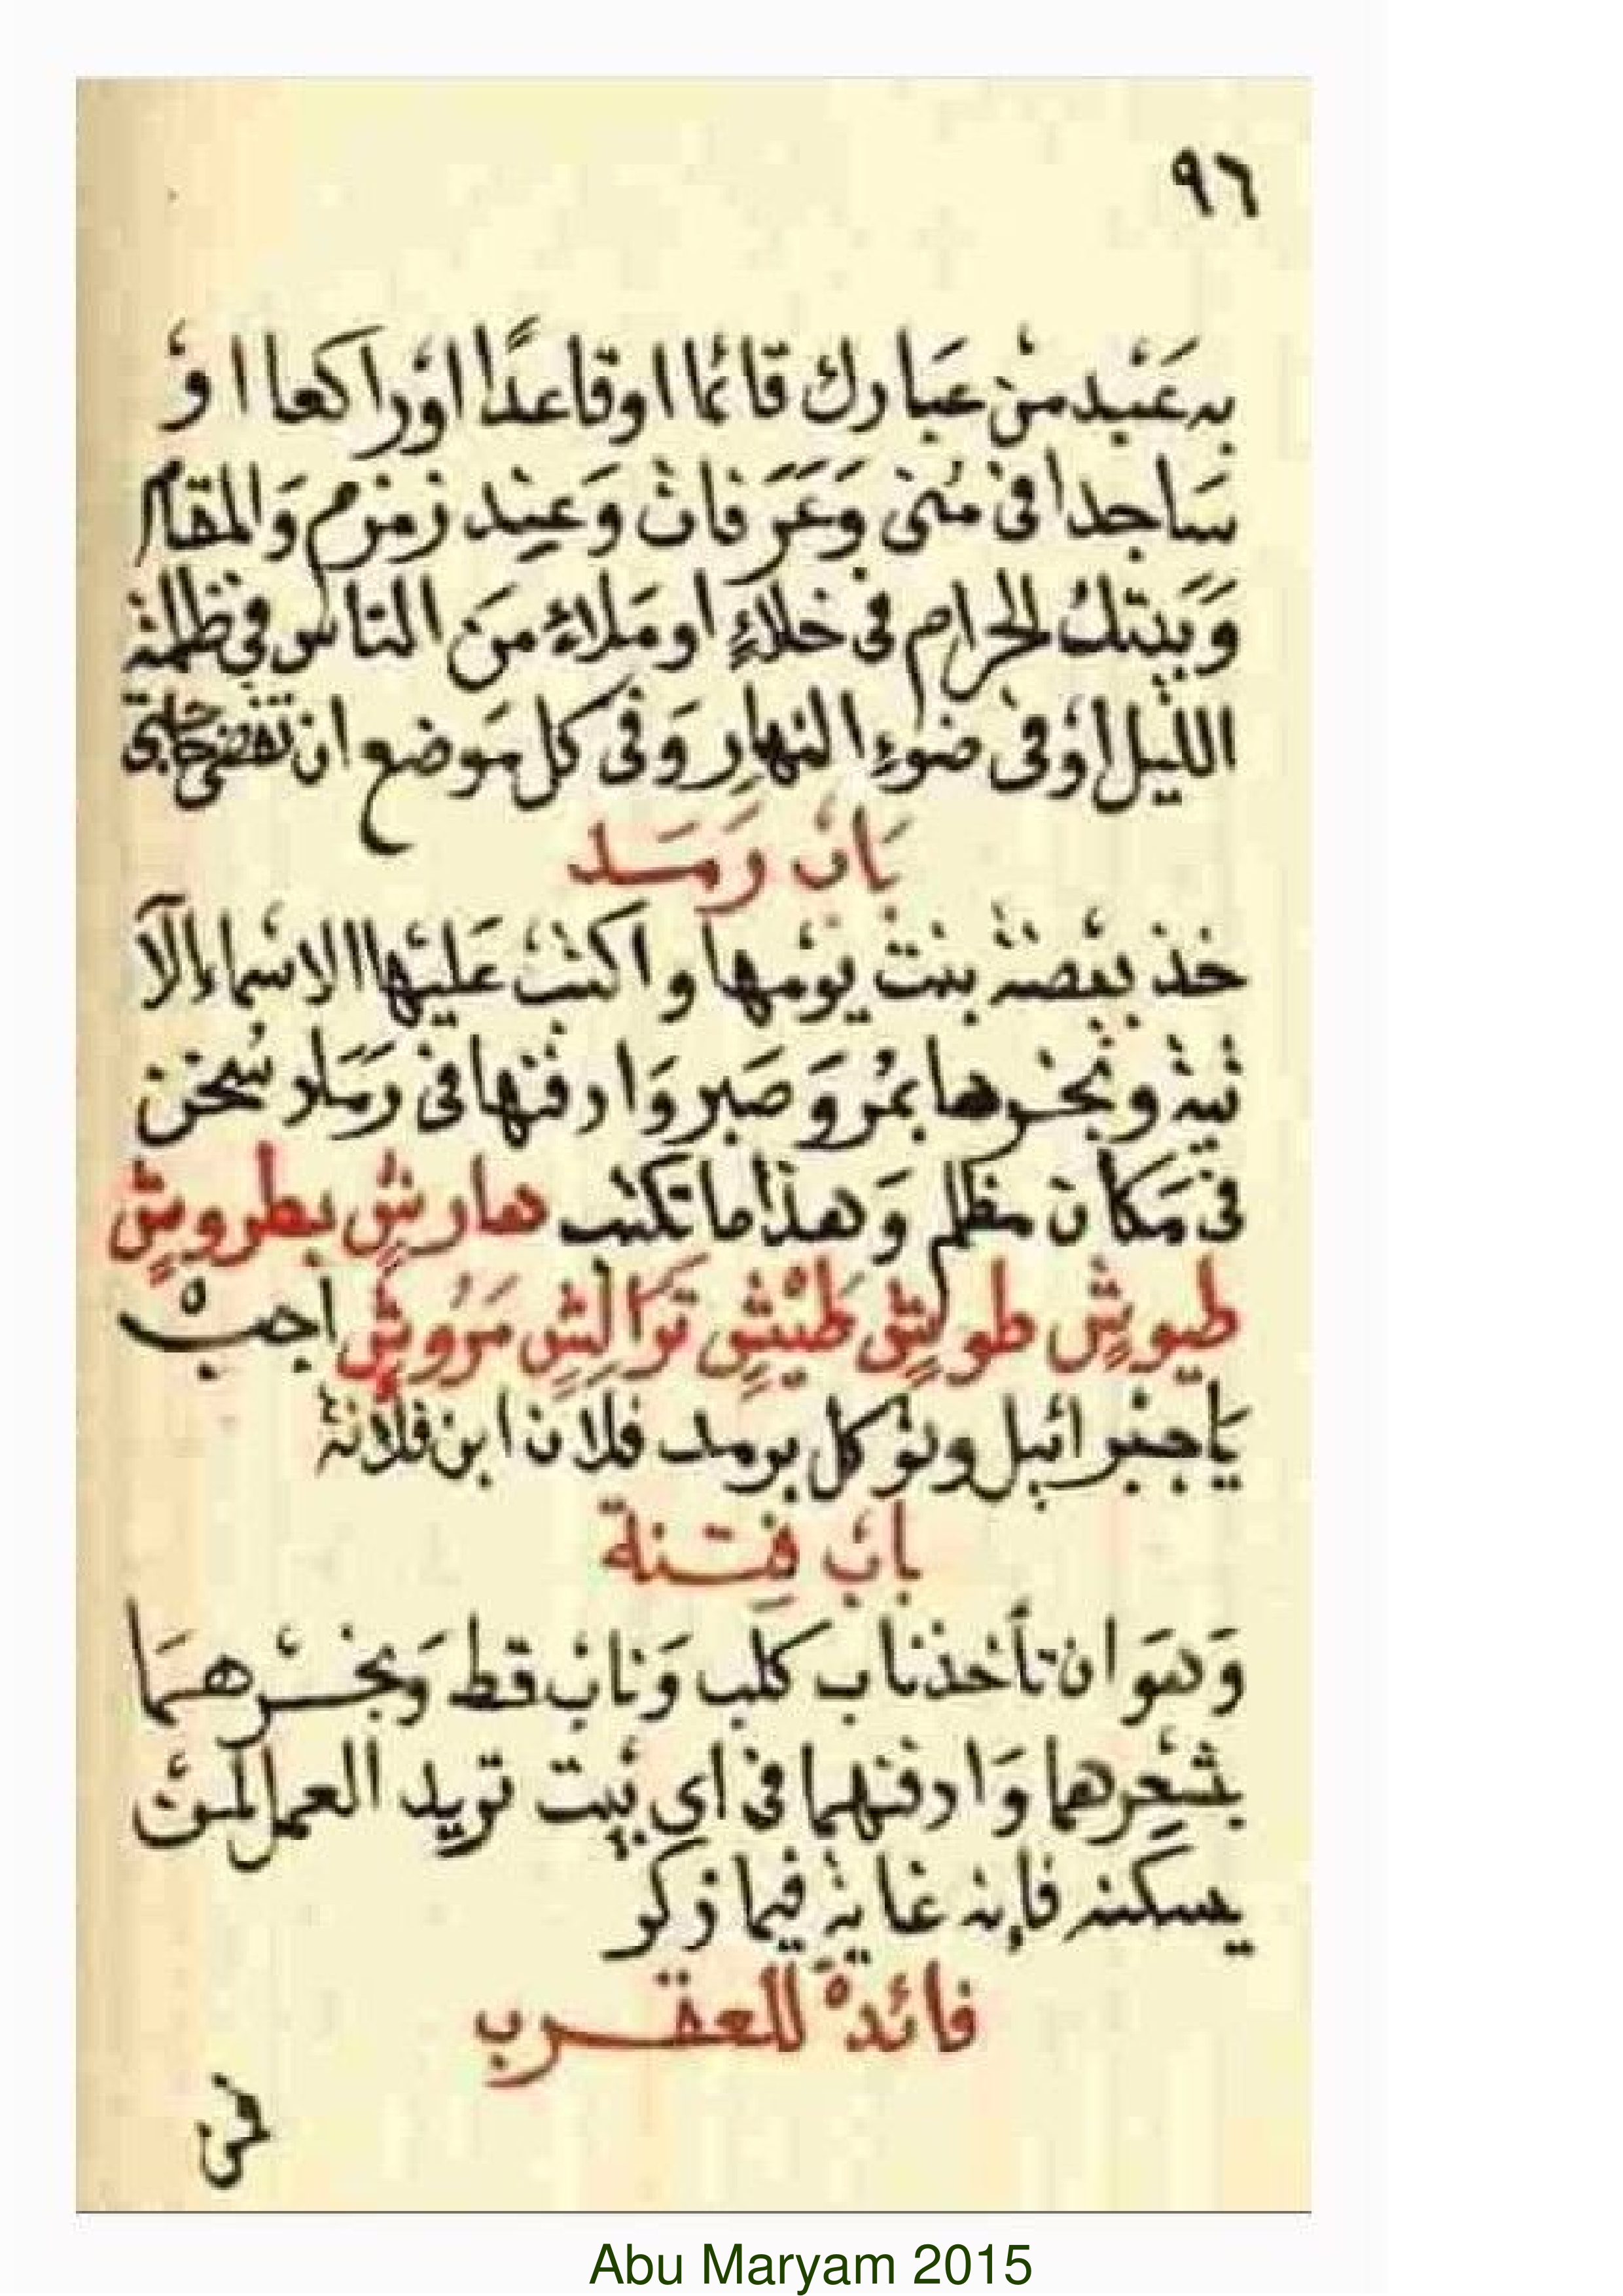 ٩٦
به عَبْد من عبَادك قائما اوقاعدًا اوْراكعا اوْ
سَاجدا فى مُنى وَعَرَفات وَعِند زمزم وَالمقام
وَبَيتك الحرام فى خلاءٍ او مَلاءٍ منَ الناس فى ظلمة
الليل اوْفى ضوءِ النهارِ وَفى كل مَوضع ان تقضى حاجتى
بَابْ رَمَـد
خذ بيْضة بنت يوْمها واكتبْ عَليْها الاسْماء الآ
تية وبخرها بمُرَ وَصَبر وَادفنها فى رمَاد سُخن
فى مَكان مظلم وَهذا ما تكتب هارشٍ بطروشٍ
طيوشٍ طولشٍ طَيْشٍ تَرَالِشٍ مَرُوشٍ اجبْ
يَاجبْرائيل وتوْكل برمد فلان ابن فلانة
بابْ فِتـنة
وَهوَ ان تأخذ ناب كلب وَنابْ قط وَبخـرْهـمَا
بشعْرِهما وَادفنهما فى اى بيت تريد العمل لمنْ
يسكنه فإنه غاية فيما ذكر
فائدة للعقـرب
فى
Abu Maryam 2015